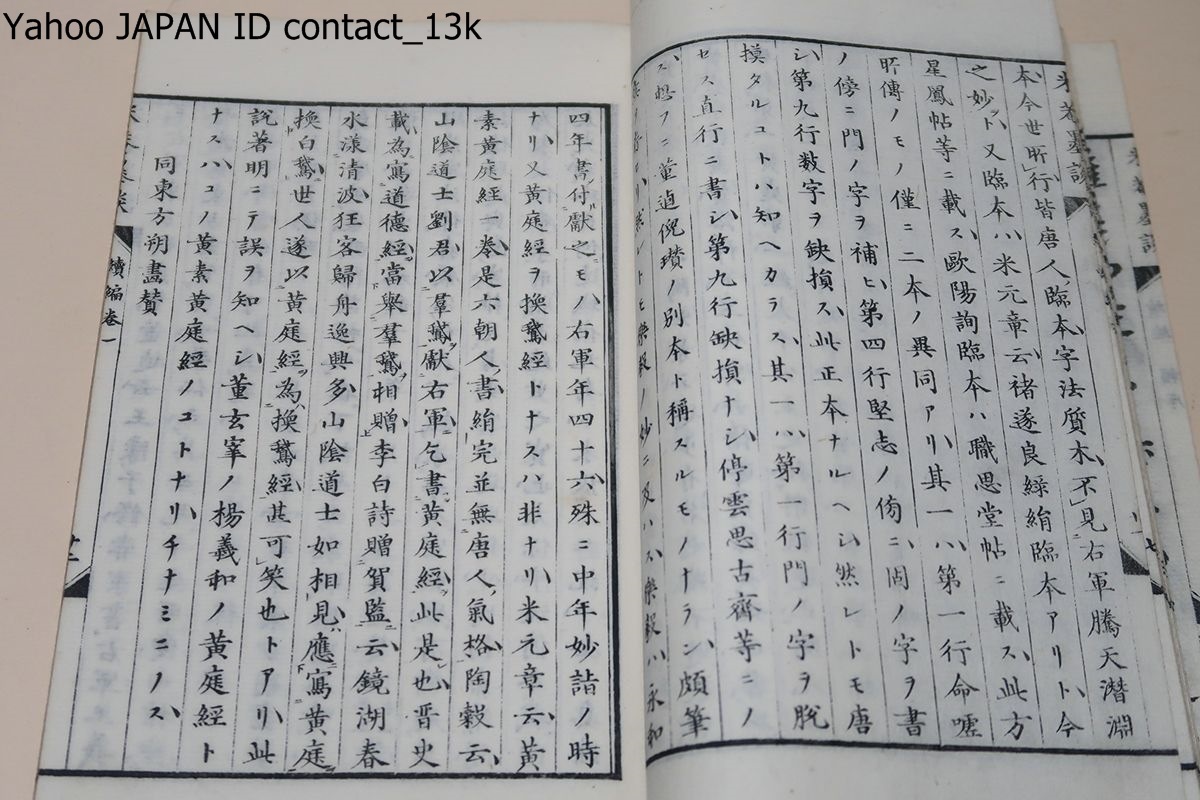 Yahoo JAPAN ID contact_13k
米菴墨談
本今世所行皆唐人臨本字法質木不見右軍騰天潛淵
之妙ト又臨本ハ米元章云褚遂良綠絹臨本アリト今
星鳳帖等ニ載ス歐陽詢臨本ハ職思堂帖ニ載ス此方
所傳ノモノ僅ニ二本ノ異同アリ其一ハ第一行命嘘
ノ傍ニ門ノ字ヲ補ヒ第四行堅志ノ傍ニ固ノ字ヲ書
シ第九行数字ヲ缺損ス此正本ナルヘシ然レトモ唐
摸タルコトハ知ヘカラス其一ハ第一行門ノ字ヲ脱
セス直行ニ書シ第九行缺損ナシ停雲思古齋等ニノ
ス想フニ董逌倪瓚ノ別本ト稱スルモノナラン頗筆
然レトモ樂毅ノ妙ニ及ハス樂毅ハ永和
四年書付獻之モハ右軍年四十六殊ニ中年妙詣ノ時
ナリ又黄庭經ヲ換鵞經トナスハ非ナリ米元章云黄
素黄庭經一卷是六朝人書絹完並無唐人氣格陶穀云
山陰道士劉君以羣鵞獻右軍乞書黄庭經此是也晋史
載為寫道德經當舉羣鵞相贈李白詩贈賀監云鏡湖春
水漾清波狂客歸舟逸興多山陰道士如相見應寫黄庭
換白鵞世人遂以黄庭經為換鵞經甚可笑也トアリ此
説著明ニテ誤ヲ知ヘシ董玄宰ノ楊義和ノ黄庭經ト
ナスハコノ黄素黄庭經ノコトナリチナミニノス
同東方朔畫賛
續編卷一